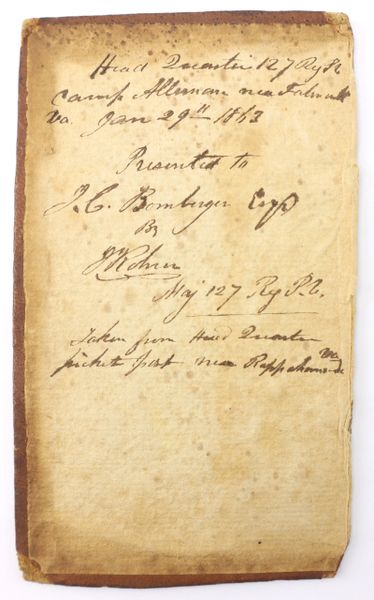 Head Quarters 127 Reg Pa
Camp Alleman near Falmouth
Va. Jan 29th 1863
Presented to
J. C. Bomberger Esqr
By
J Rohrer
Maj 127 Reg P. V.
Taken from Head Quarters
picket post near Rappahannock
Va